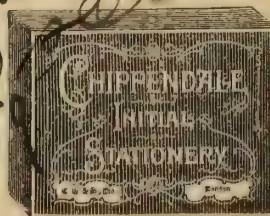 CHIPPENDALE
INITIAL
STATIONERY
London